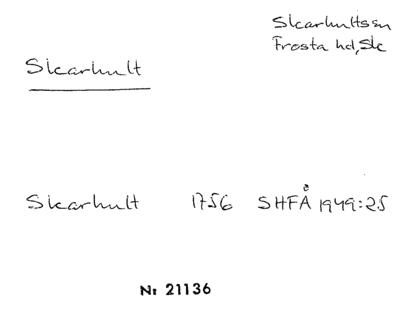 Skarhults sn
Frosta hd, Sk
Skarhult
Skarhult 1756 SHFÅ 1949:25
Nr 21136